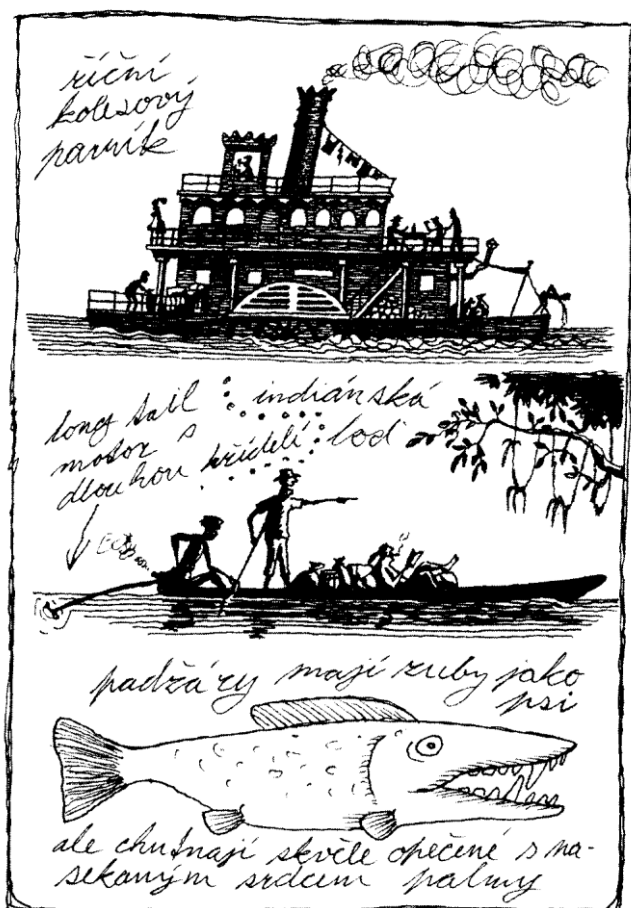 říční
kolesový
parník
long tail
motor s
dlouhou hřídelí
indiánská
loď
padžáry mají zuby jako
psi
ale chutnají skvěle opečené s na-
sekaným srdcem palmy